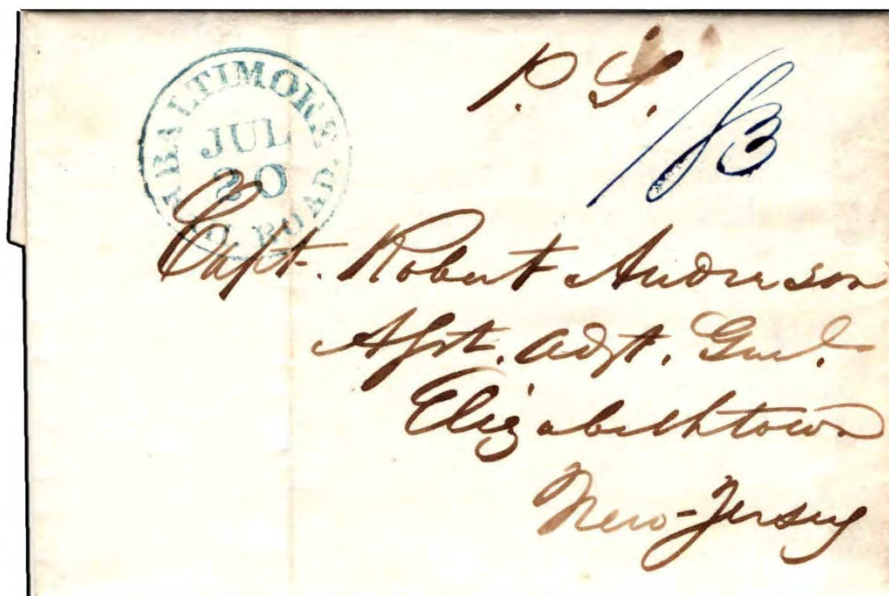 P. S.
18 3
BALTIMORE
JUL
20
ROAD.
Capt. Robert Anderson
Asst. Adjt. Genl.
Elizabethtown
New-Jersey